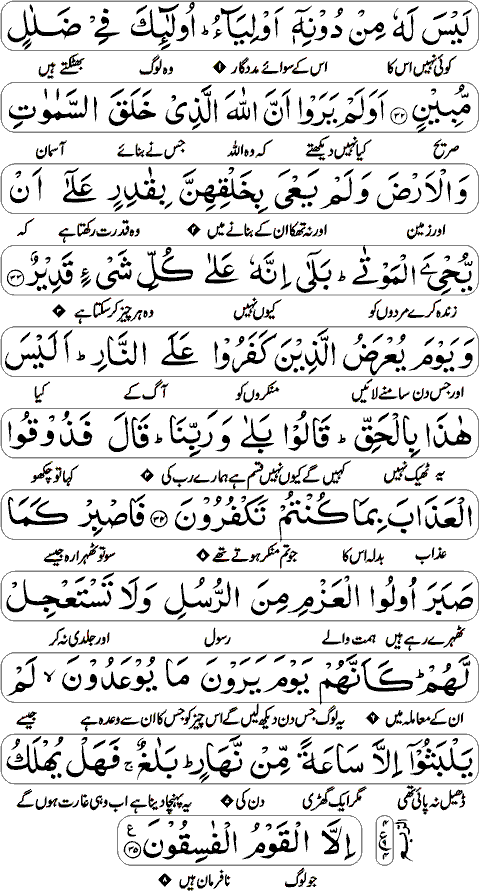 لَيْسَ لَهٗ مِنْ دُوْنِهٖۤ اَوْلِيَآءُ ؕ اُولٰٓئِكَ فِيْ ضَلٰلٍ
کوئی نہیں اس کا اس کے سوائے مددگار وہ لوگ بھٹکتے ہیں
مُّبِيْنٍ ﴿۳۲﴾ اَوَلَمْ يَرَوْا اَنَّ اللّٰهَ الَّذِيْ خَلَقَ السَّمٰوٰتِ
صریح کیا نہیں دیکھتے کہ وہ اللہ جس نے بنائے آسمان
وَالْاَرْضَ وَلَمْ يَعْيَ بِخَلْقِهِنَّ بِقٰدِرٍ عَلٰٓى اَنْ
اور زمین اور نہ تھکا ان کے بنانے میں وہ قدرت رکھتا ہے کہ
يُّحْيِۦَ الْمَوْتٰى ؕ بَلٰٓى اِنَّهٗ عَلٰى كُلِّ شَيْءٍ قَدِيْرٌ ﴿۳۳﴾
زندہ کرے مردوں کو کیوں نہیں وہ ہر چیز کر سکتا ہے
وَيَوْمَ يُعْرَضُ الَّذِيْنَ كَفَرُوْا عَلَى النَّارِ ؕ اَلَيْسَ
اور جس دن سامنے لائیں منکروں کو آگ کے کیا
هٰذَا بِالْحَقِّ ؕ قَالُوْا بَلٰى وَرَبِّنَا ؕ قَالَ فَذُوْقُوا
یہ ٹھیک نہیں کہیں گے کیوں نہیں قسم ہے ہمارے رب کی کہا تو چکھو
الْعَذَابَ بِمَا كُنْتُمْ تَكْفُرُوْنَ ﴿۳۴﴾ فَاصْبِرْ كَمَا
عذاب بدلہ اس کا جو تم منکر ہوتے تھے سو تو ٹھہرا رہ جیسے
صَبَرَ اُولُوا الْعَزْمِ مِنَ الرُّسُلِ وَلَا تَسْتَعْجِلْ
ٹھہرے رہے ہیں ہمت والے رسول اور جلدی نہ کر
لَّهُمْ ؕ كَاَنَّهُمْ يَوْمَ يَرَوْنَ مَا يُوْعَدُوْنَ ۙ لَمْ
ان کے معاملہ میں یہ لوگ جس دن دیکھ لیں گے اس چیز کو جس کا ان سے وعدہ ہے جیسے
يَلْبَثُوْٓا اِلَّا سَاعَةً مِّنْ نَّهَارٍ ؕ بَلٰغٌ ۚ فَهَلْ يُهْلَكُ
ڈھیل نہ پائی تھی مگر ایک گھڑی دن کی یہ پہنچا دینا ہے اب وہی غارت ہوں گے
اِلَّا الْقَوْمُ الْفٰسِقُوْنَ ﴿۳۵﴾
جو لوگ نافرمان ہیں